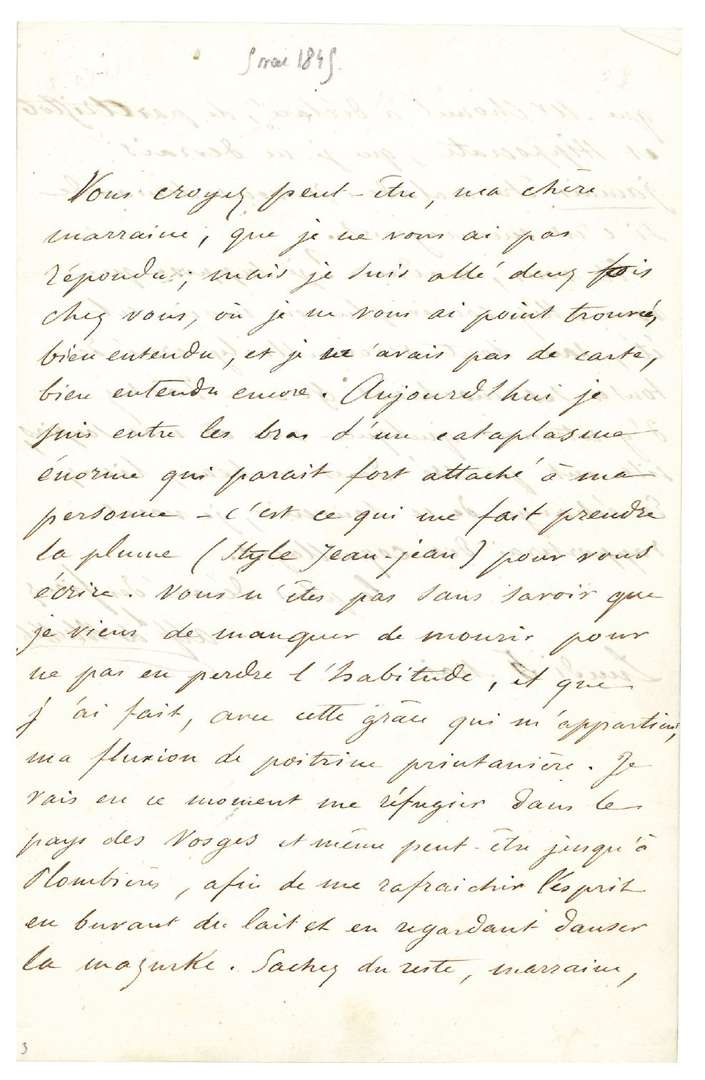 5 mai 1845.
Vous croyez peut-être, ma chère
marraine, que je ne vous ai pas
répondu ; mais je suis allé deux fois
chez vous, où je ne vous ai point trouvée,
bien entendu, et je n'avais pas de carte,
bien entendu encore. Aujourd'hui je
suis entre les bras d'un cataplasme
énorme qui parait fort attaché à ma
personne - c'est ce qui me fait prendre
la plume (style Jean-jean) pour vous
écrire. Vous n'êtes pas sans savoir que
je viens de manquer de mourir pour
ne pas en perdre l'habitude, et que
j'ai fait, avec cette grâce qui m'appartient,
ma fluxion de poitrine printanière. Je
vais en ce moment me réfugier dans le
pays des Vosges et même peut-être jusqu'à
Plombières, afin de me rafraichir l'esprit
en buvant du lait et en regardant danser
la mazurke. Sachez du reste, marraine,
3